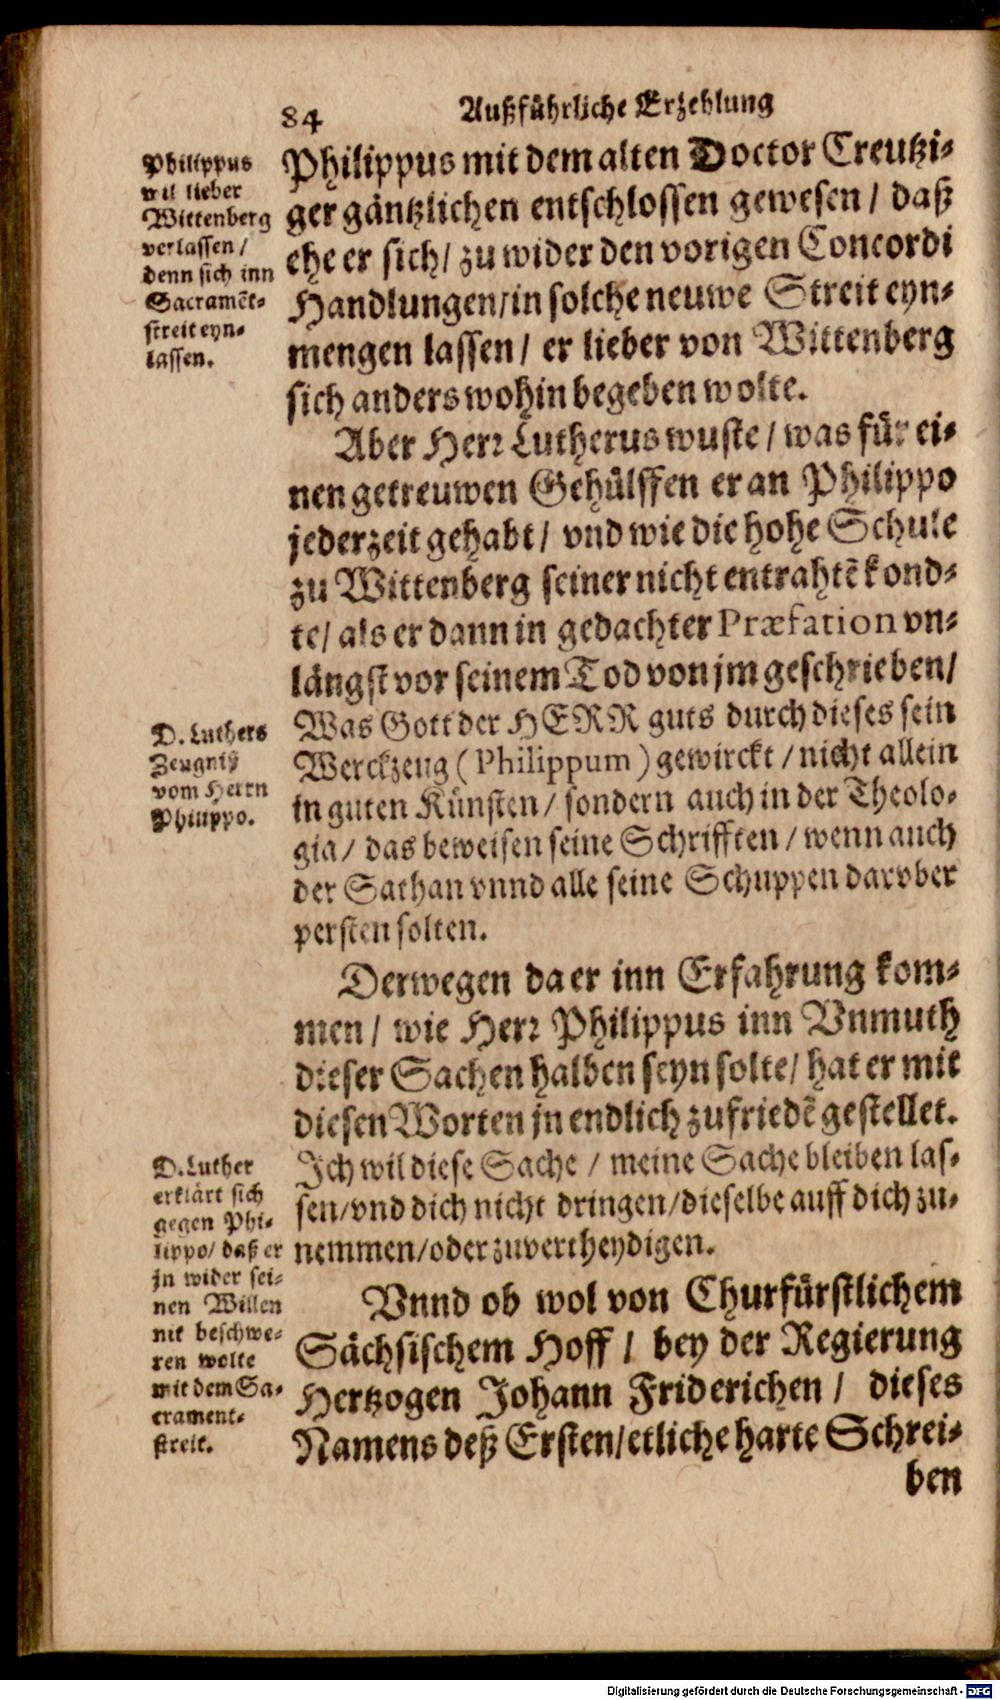 84
Außführliche Erzehlung
Philippus
wil lieber
Wittenberg
verlassen /
denn sich inn
Sacramẽt-
streit eyn-
lassen.
Philippus mit dem alten Doctor Creutzi-
ger gäntzlichen entschlossen gewesen / daß
ehe er sich / zu wider den vorigen Concordi
Handlungen / in solche neuwe Streit eyn-
mengen lassen / er lieber von Wittenberg
sich anders wohin begeben wolte.
Aber Herr Lutherus wuste / was für ei-
nen getreuwen Gehülffen er an Philippo
jederzeit gehabt / vnd wie die hohe Schule
zu Wittenberg seiner nicht entrahtẽ kond-
te / als er dann in gedachter Præfation vn-
längst vor seinem Tod von jm geschrieben /
D. Luthers
Zeugniß
vom Herrn
Philippo.
Was Gott der HERR guts durch dieses sein
Werckzeug ( Philippum ) gewirckt / nicht allein
in guten Künsten / sondern auch in der Theolo-
gia / das beweisen seine Schrifften / wenn auch
der Sathan vnnd alle seine Schuppen darvber
persten solten.
Derwegen da er inn Erfahrung kom-
men / wie Herr Philippus inn Vnmuth
dieser Sachen halben seyn solte / hat er mit
diesen Worten jn endlich zufriedẽ gestellet.
D. Luther
erklärt sich
gegen Phi-
lippo / daß er
jn wider sei-
nen Willen
nit beschwe-
ren wolte
mit dem Sa-
crament-
streit.
Ich wil diese Sache / meine Sache bleiben las-
sen / vnd dich nicht dringen / dieselbe auff dich zu-
nemmen / oder zuvertheydigen.
Vnnd ob wol von Churfürstlichem
Sächsischem Hoff / bey der Regierung
Hertzogen Johann Friderichen / dieses
Namens deß Ersten / etliche harte Schrei-
ben
Digitalisierung gefördert durch die Deutsche Forschungsgemeinschaft - DFG